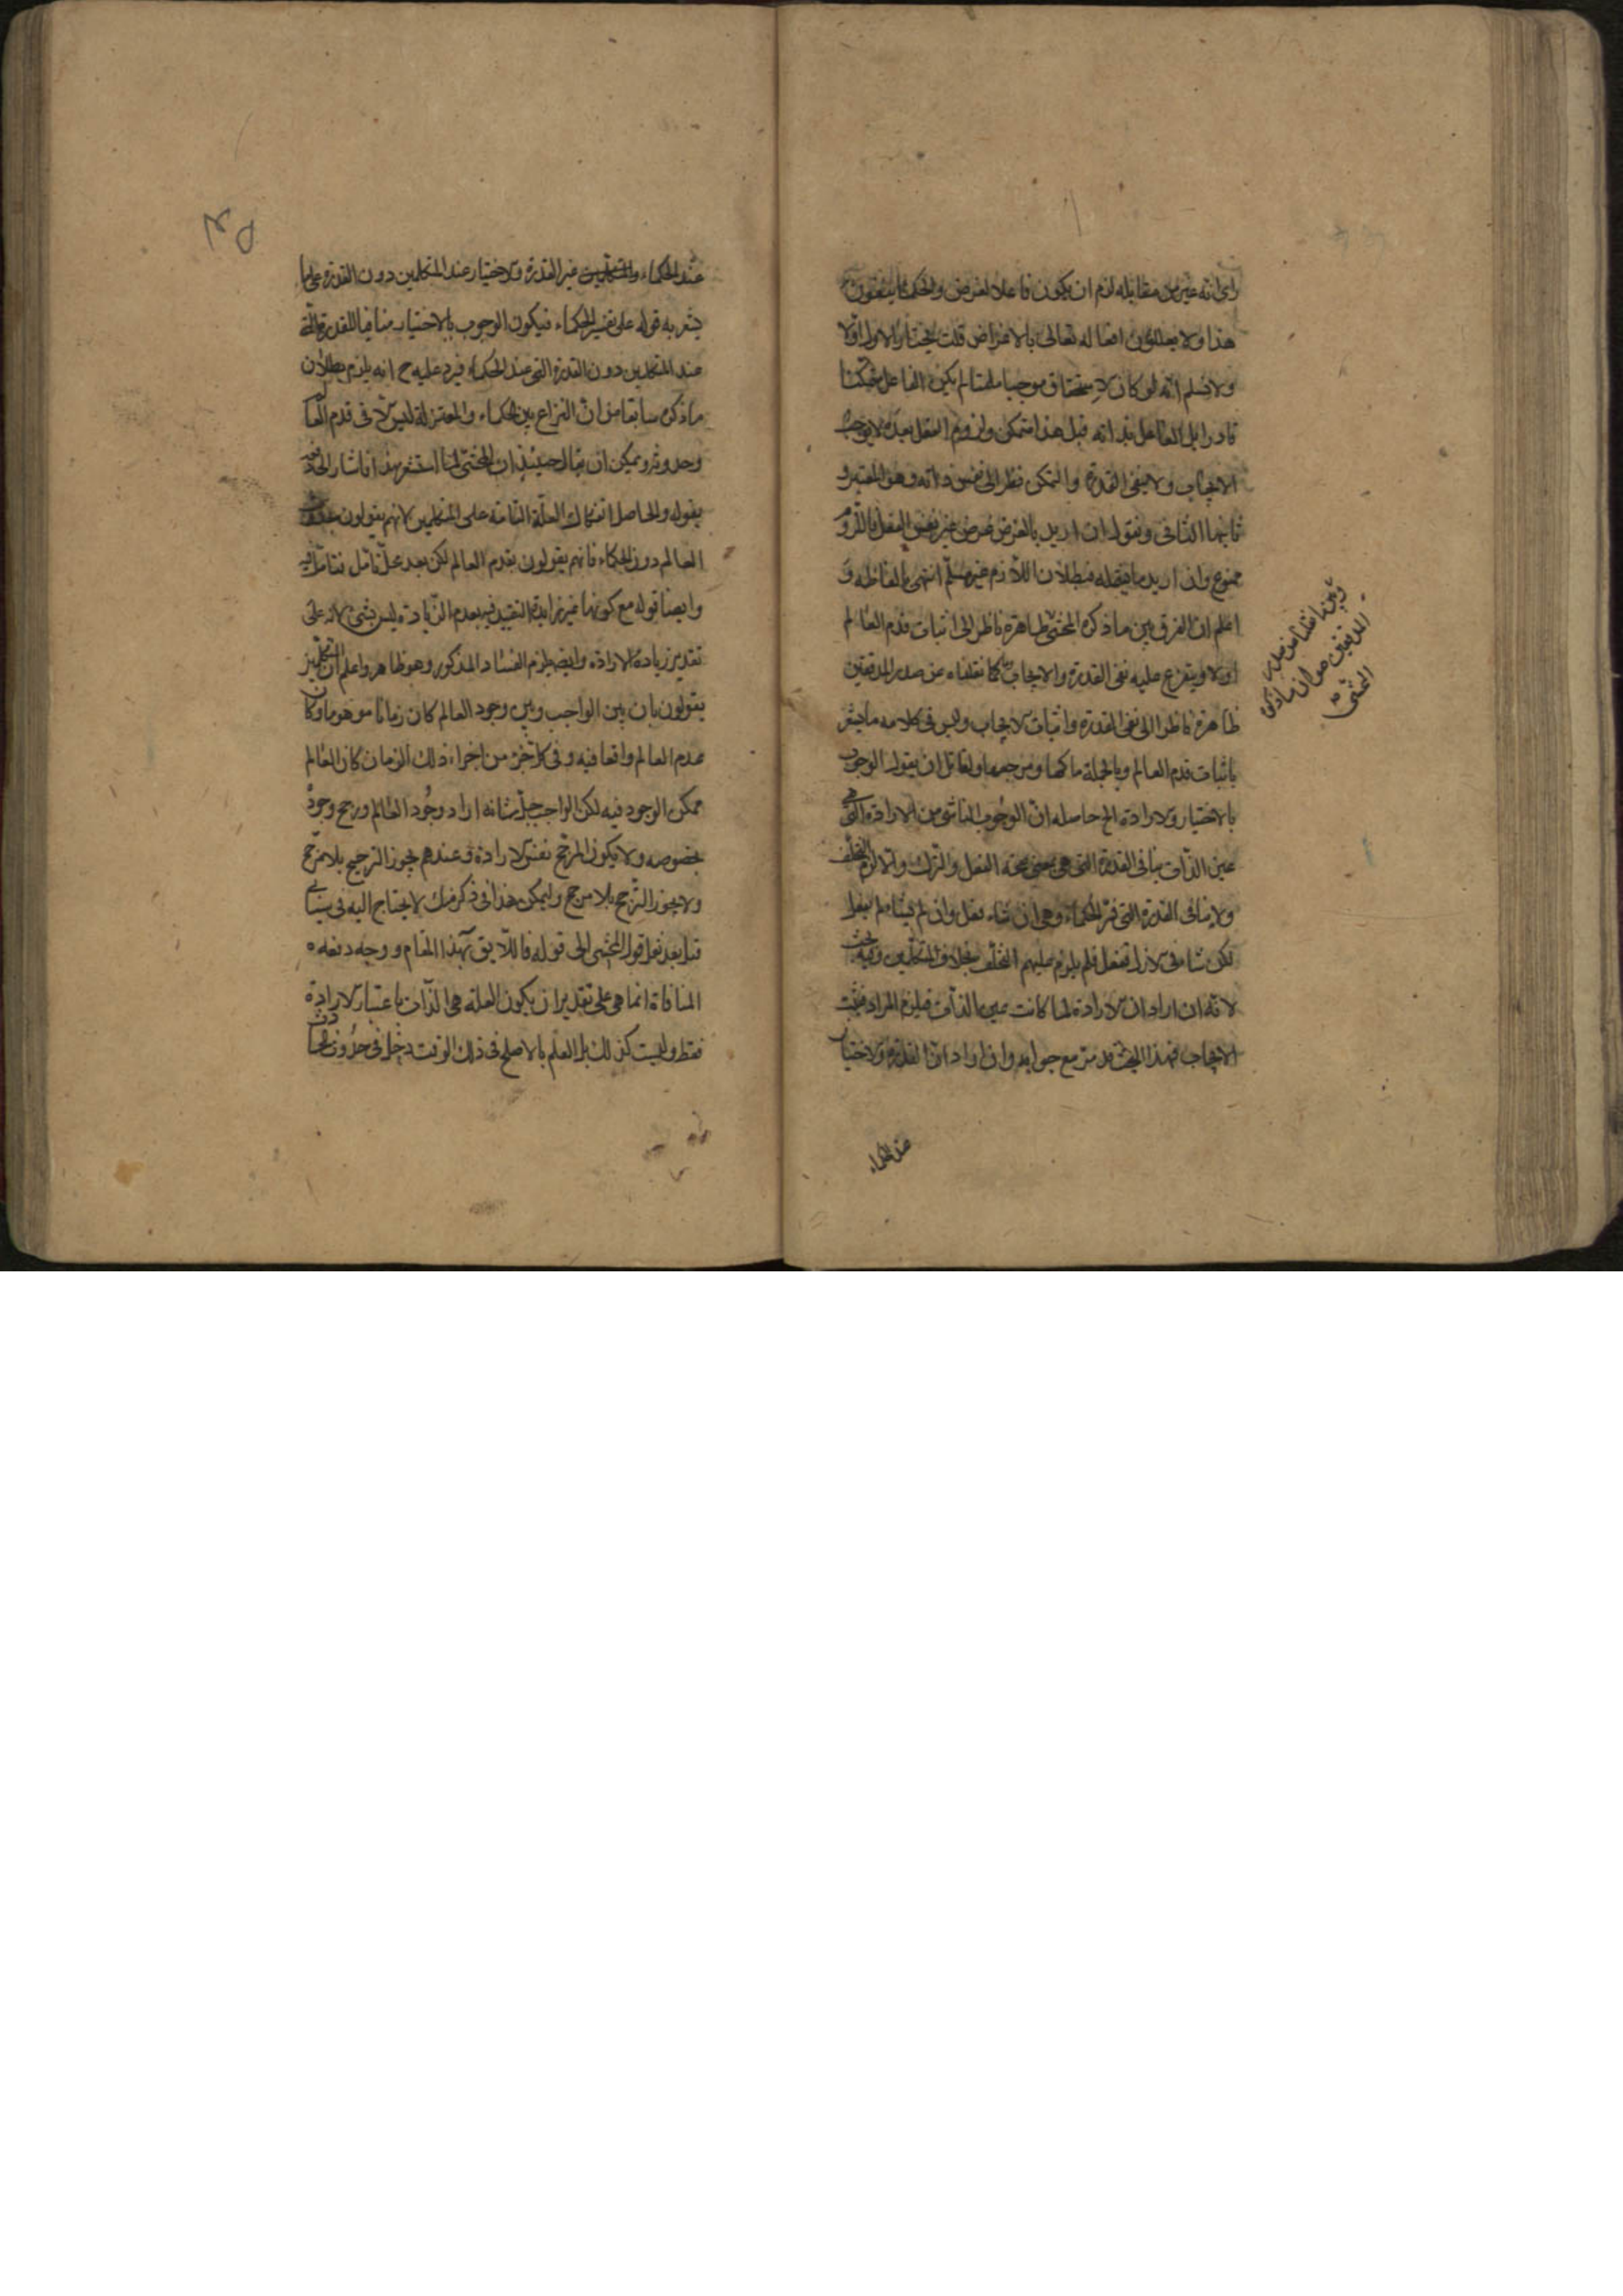 راى انه خير من مقابله لزم ان يكون فاعلا لغرض والحكماء ينفون
هذا ولا يعللون افعاله تعالى بالاغراض قلت نختار الاول اولا
ولا نسلم انه لو كان الاستحقاق موجبا ملتئما لم يكن الفاعل متمكنا
قادرا بل الفاعل بذاته قبل هذا متمكن ولزوم الفعل بعده لا يوجب
الايجاب ولا ينفى القدرة والتمكن نظرا الى نفس ذاته وهو المعتبر و
ثانيهما الثانى ونقول ان اريد بالغرض غرض غير نفس الفعل فاللزوم
ممنوع وان اريد ما فبطلان اللازم غير مسلم انتهى بالفاظه و
اعلم ان الفرق بين ما ذكره المحشى ظاهره ناظر الى اثبات قدم العالم
اولا ويتفرع عليه نفى القدرة والايجاب كما نقلناه عن صدر المدققين
ظاهره ناظر الى نفى القدرة واثبات الايجاب وليس فى كلامه ما يشعر
باثبات قدم العالم وبالجملة ولقائل ان يقول الوجوب
بالاختيار والارادة الخ حاصله ان الوجوب الناشى من الارادة التى هى
عين الذات ينافى القدرة التى هى بمعنى صحة الفعل والترك والا لزم التخلف
ولا ينافى القدرة التى فسر الحكماء وهى ان شاء فعل وان لم يشاء لم يفعل
لكن شاء فى الازل ففعل فلم يلزم عليهم التخلف بخلاف المتكلمين وفيه بحث
لانه ان اراد ان الارادة لما كانت عين الذات فيلزم المراد فيثبت
الايجاب فهذا البحث قد مر مع جوابه وان اراد ان القدرة والاختيار
عند الحكماء
وبين ما نقلنا من صدر
المدققين هو ان ما ذكره
المحشى
عند الحكماء غير القدرة والاختيار عند المتكلمين دون القدرة على ما
يشعر به قوله على تفسير الحكماء فيكون الوجوب بالاختيار منافيا للقدرة التى
عند المتكلمين دون القدرة التى عند الحكماء فيرد عليه ح انه يلزم بطلان
ما ذكره سابقا من ان النزاع بين الحكماء والمعتزلة ليس الا فى قدم العالم
وحدوثه ويمكن ان يقال حينئذ ان المحشى لما استشعر بهذا اشار الى دفعه
بقوله والحاصل انفكاك العلة التامة على المتكلمين لانهم يقولون بحدوث
العالم دون الحكماء فانهم يقولون بقدم العالم لكن بعد محل تأمل فتأمل فيه
وايضا قوله مع كونها غير زايدة التقييد فيه بعدم الزيادة ليس بشئ لانه على
تقدير زيادة الارادة وايضا يلزم الفساد المذكور وهو ظاهر واعلم ان المتكلمين
يقولون بان بين الواجب وبين وجود العالم كان زمانا موهوما وكان
عدم العالم واقعا فيه وفى كل جزء من اجزاء ذلك الزمان كان العالم
ممكن الوجود فيه لكن الواجب جل شانه اراد وجود العالم ورجح وجوده
بخصوصه ولا يكون المرجح نفس الارادة فعندهم يجوز الترجيح بلا مرجح
ولا يجوز الترجح بلا مرجح وليكن هذا فى ذكر منك لا يحتاج اليه فى سيأتى
فيما بعد قول المحشى الى قوله فاللايق بهذا المقام ووجه دفعه ه
المنافاة انما هى على تقدير ان يكون العلة هى الذات باعتبار الارادة
فقط وليست كذلك بل العلم بالاصلح فى ذلك الوقت دخل فى حدوث